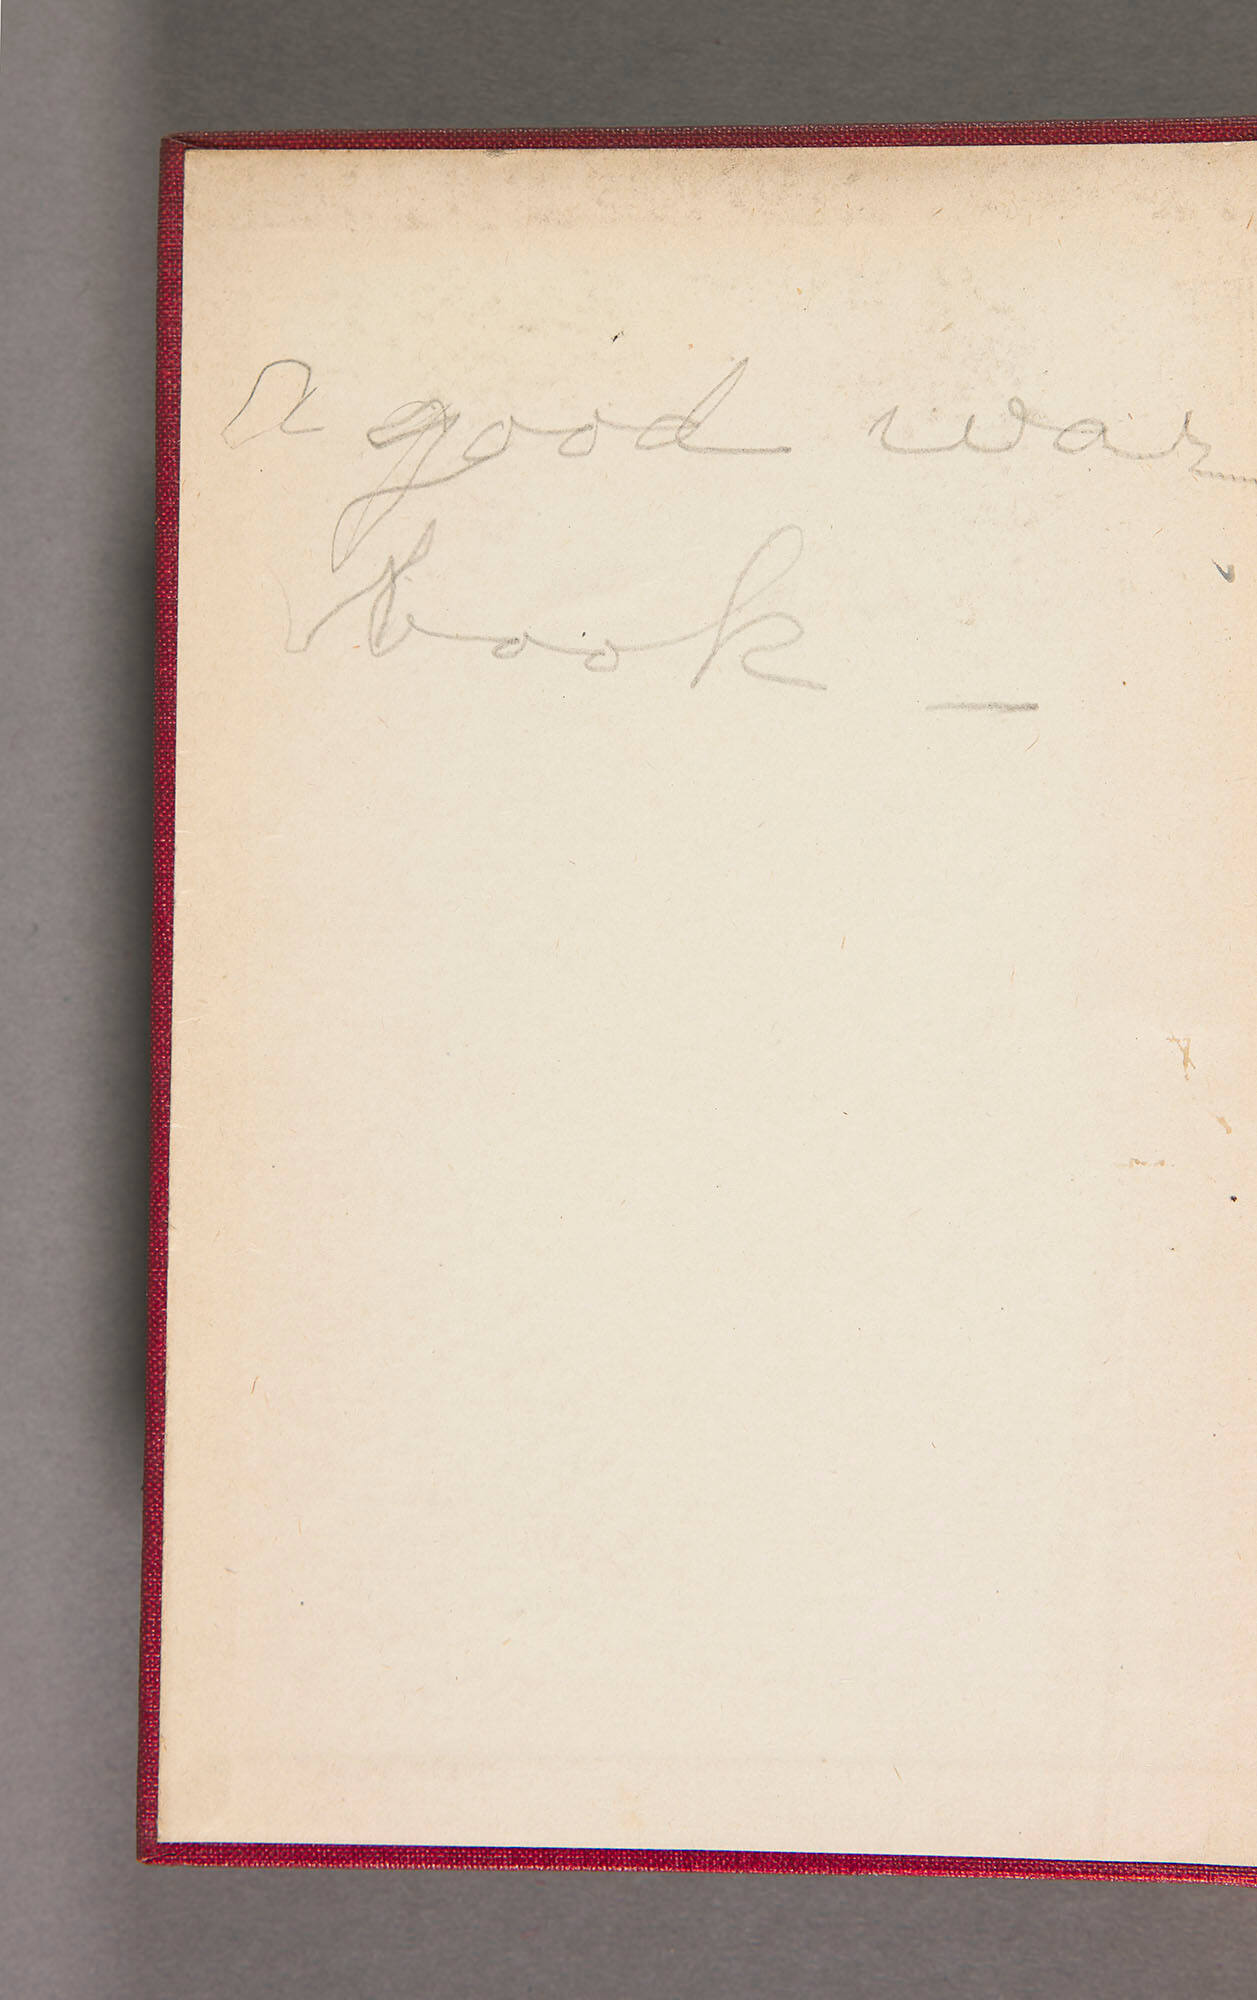 A good war
book —